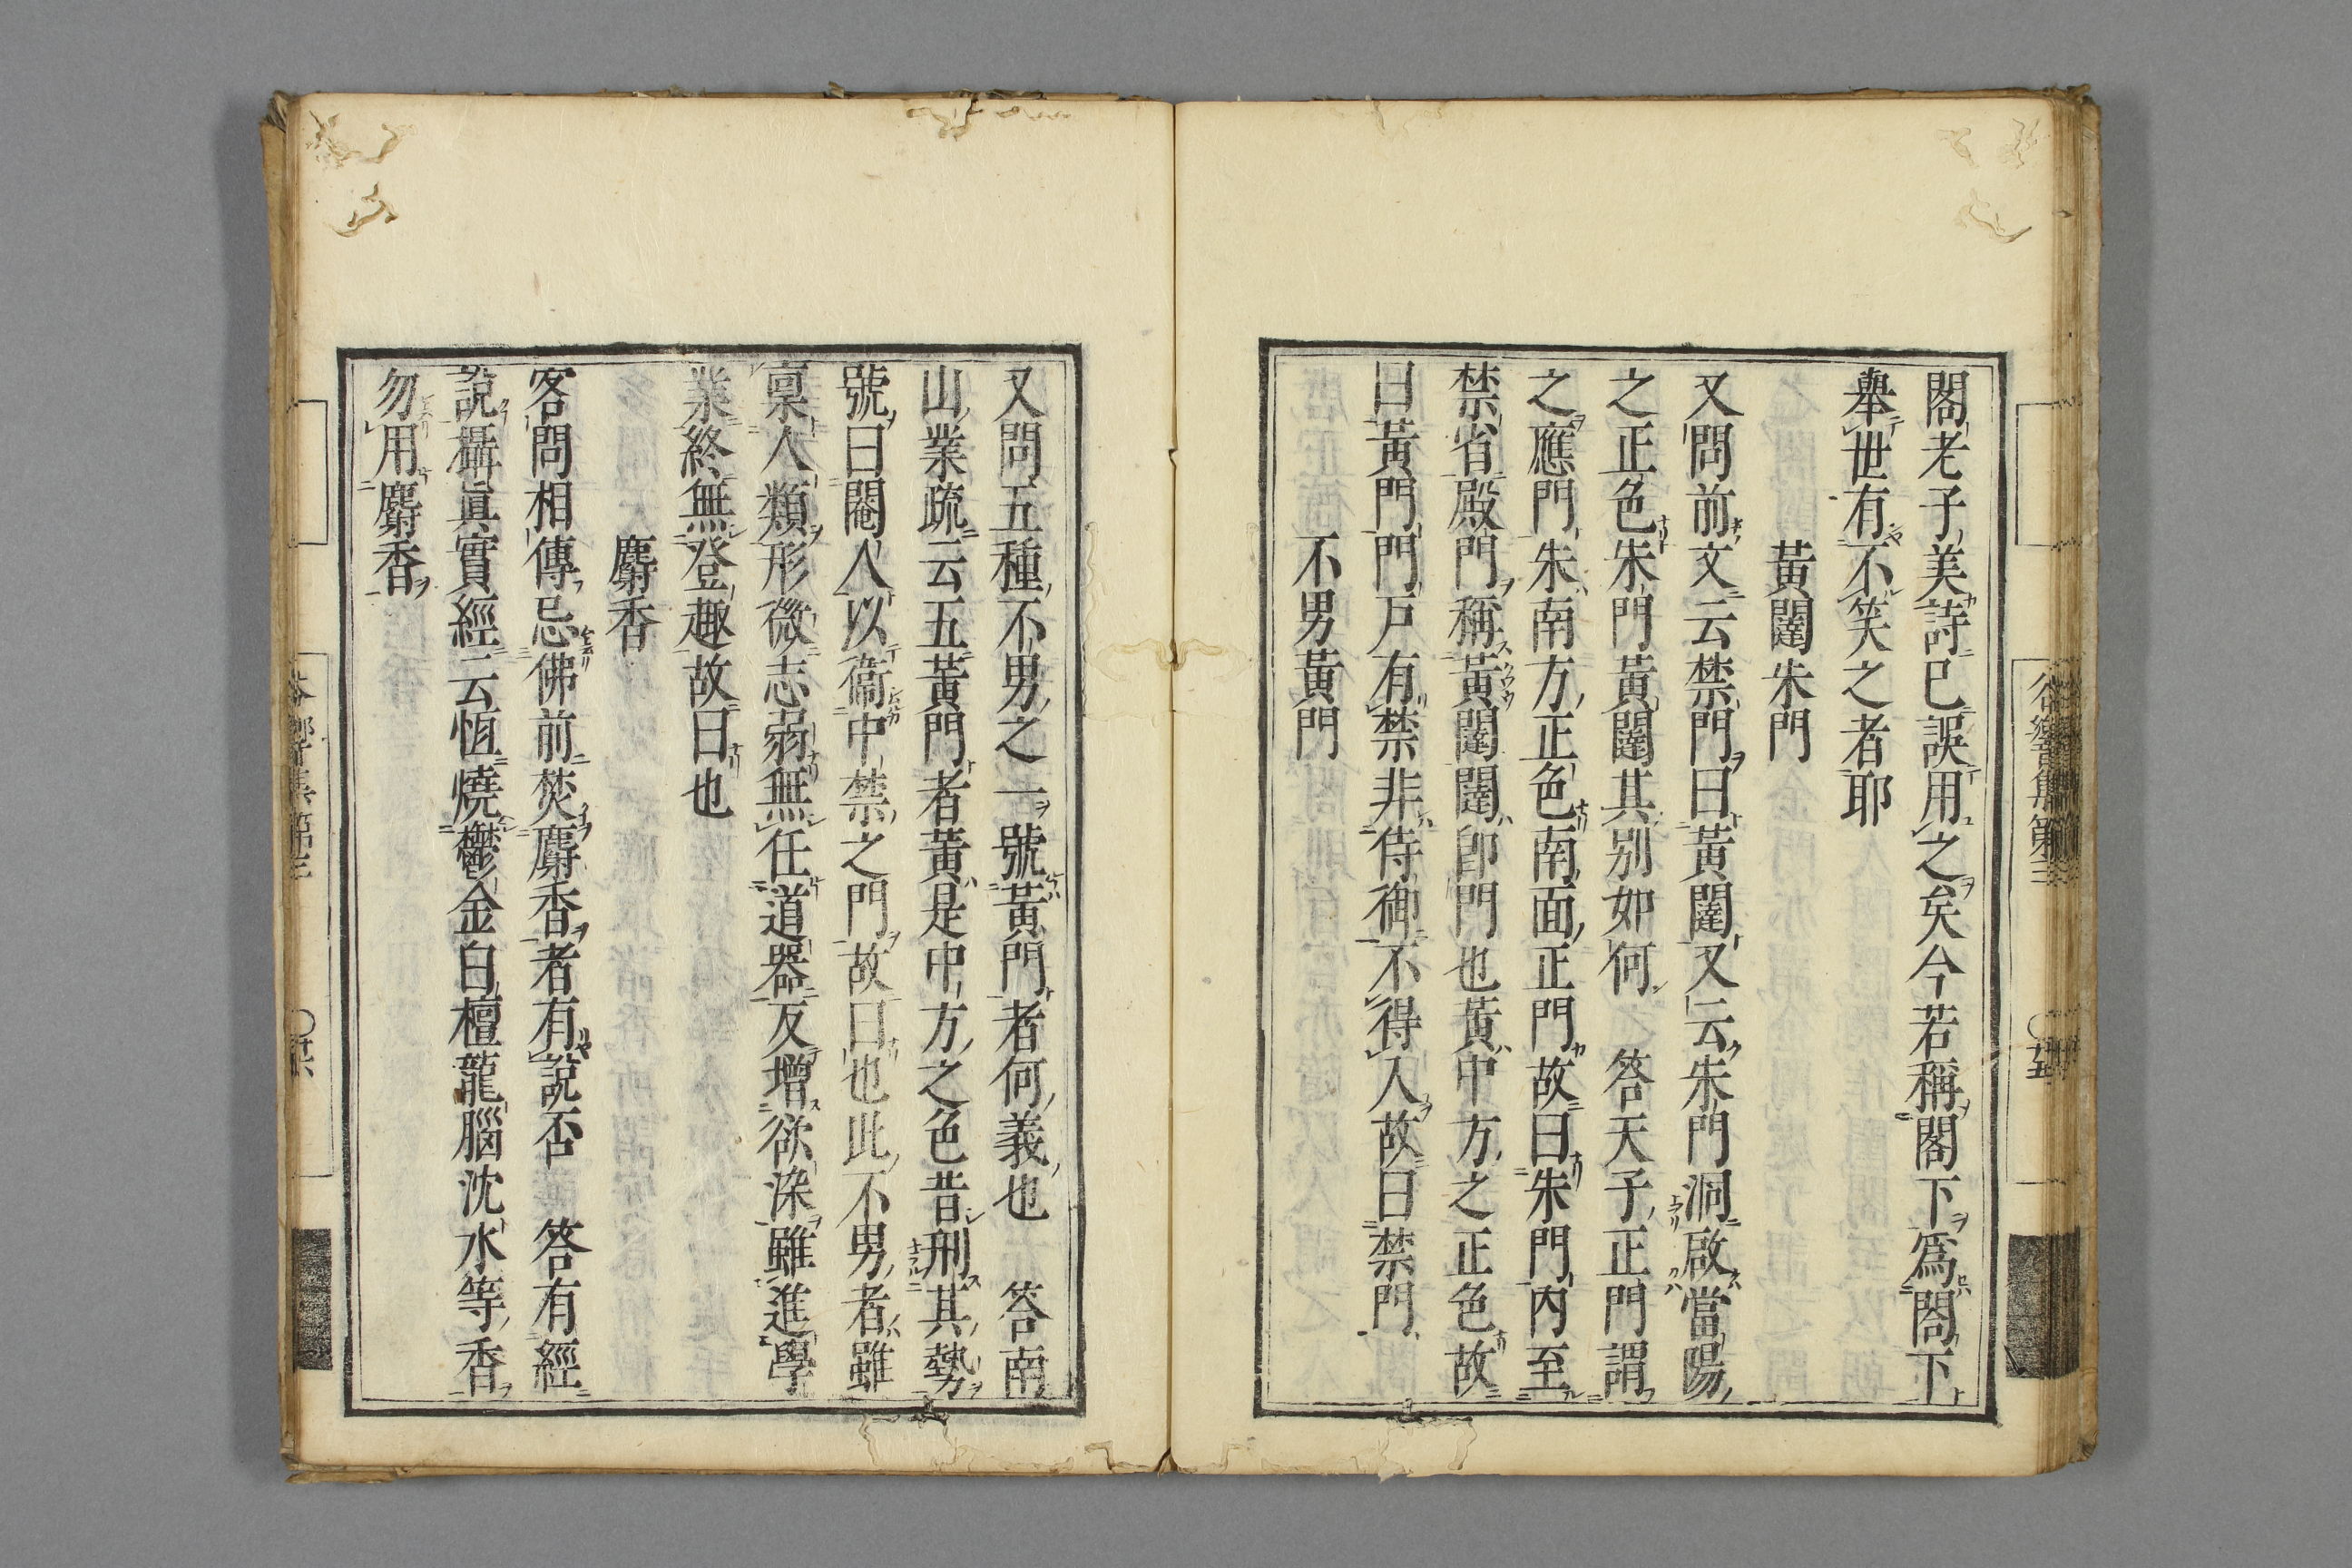 閣老子美詩已誤用之矣今若稱閣下爲閤下
舉世有不笑之者耶
黃闥朱門
又問前文云禁門曰黃闥又云朱門洞啟當陽
之正色朱門黃闥其別如何　答天子正門謂
之應門朱南方正色南面正門故曰朱門内至
禁省殿門稱黃闥闥卽門也黃中方之正色故
曰黃門門戸有禁非侍御不得入故曰禁門
不男黃門
谷響集第三
〇廿五
又問五種不男之一號黃門者何義也　答南
山業疏云五黃門者黃是中方之色昔刑其勢
號曰閹人以衞中禁之門故曰也此不男者雖
禀人類形微志弱無任道器反增欲染雖進學
業終無登趣故曰也
麝香
客問相傳忌佛前焚麝香者有説否　答有經
説攝眞實經云恆燒鬱金白檀龍腦沈水等香
勿用麝香
谷響集第三
〇廿六